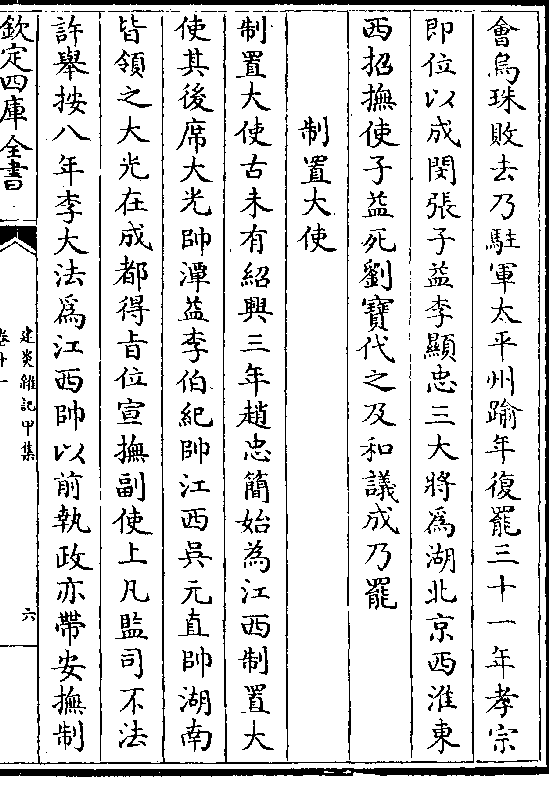 會烏珠敗去乃駐軍太平州踰年復罷三十一年孝宗
即位以成閔張子葢李顯忠三大將爲湖北京西淮東
西招撫使子葢死劉寶代之及和議成乃罷
制置大使
制置大使古未有紹興三年趙忠簡始為江西制置大
使其後席大光帥潭葢李伯紀帥江西吳元直帥湖南
皆領之大光在成都得旨位宣撫副使上凡監司不法
許舉按八年李大法爲江西帥以前執政亦帶安撫制
欽定四庫全書
建炎雜記甲集
卷十一
六